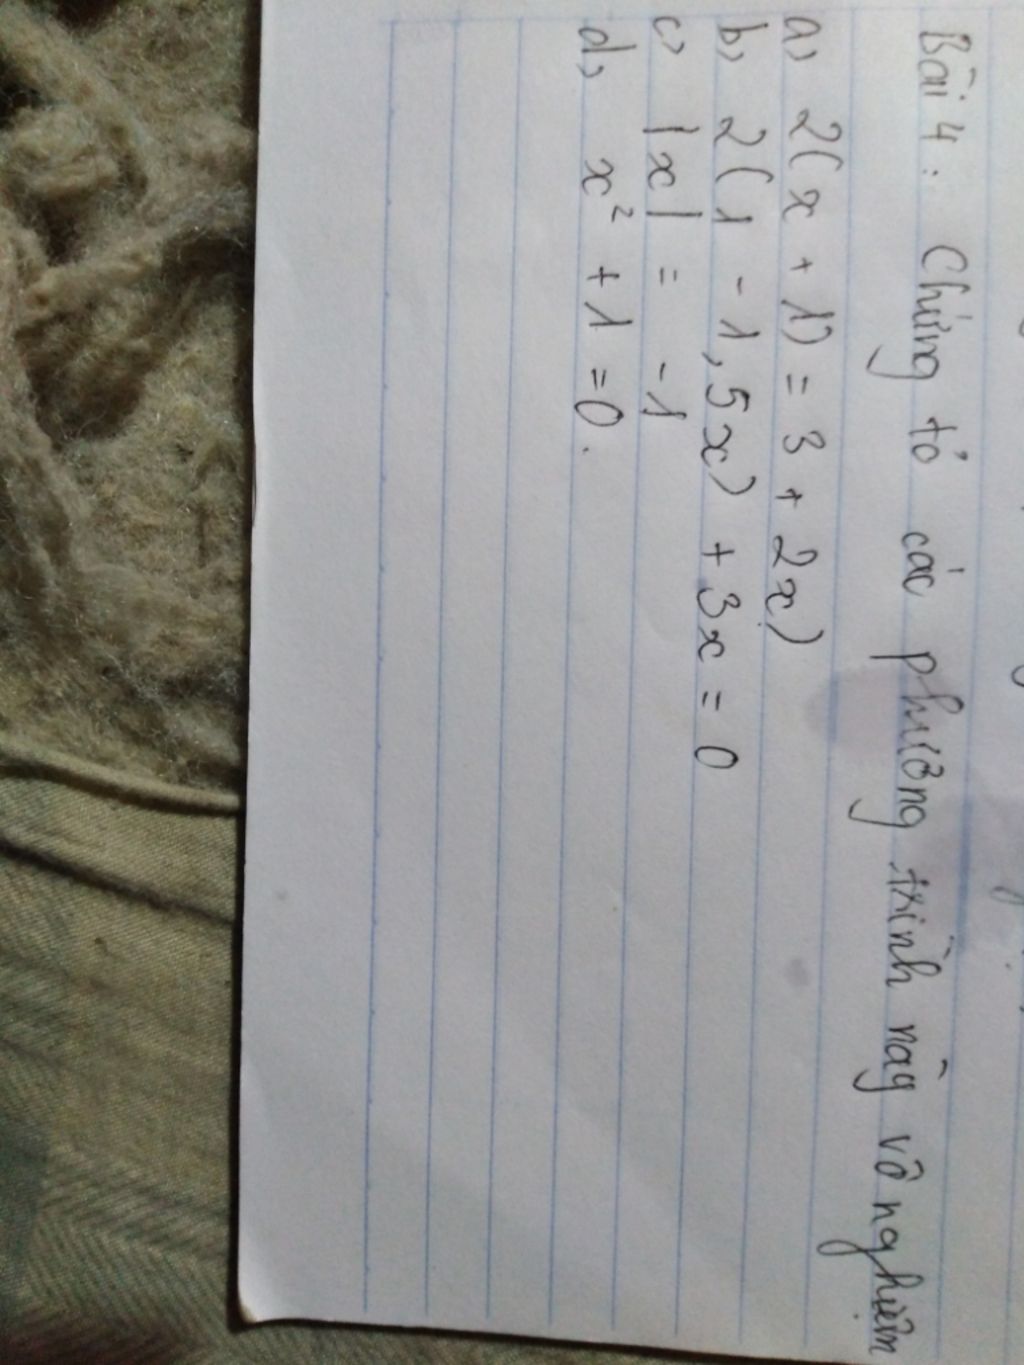 Bài 4: Chứng tỏ các phương trình này vô nghiệm
a, 2(x + 1) = 3 + 2x)
b, 2(1 - 1,5x) + 3x = 0
c, |x| = -1
d, x² + 1 = 0.